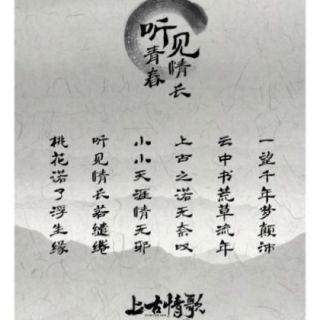 听见青春
见情长
一望千年梦颠沛
云中书荒草流年
上古之诺无奈叹
小小天涯情无邪
听见情长若缱绻
桃花诺了浮生缘
上古情歌